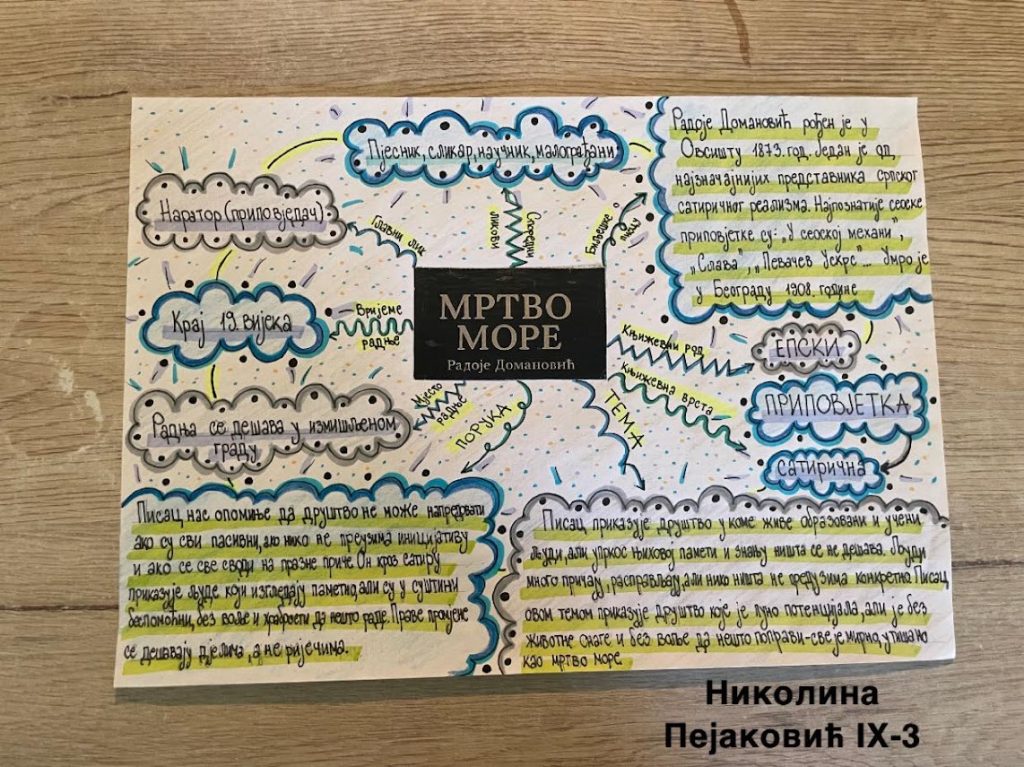 Пјесник, сликар, научник, малограђани
Радоје Домановић рођен је у
Овсишту 1873. год. Један је од
најзначајнијих представника српског
сатиричног реализма. Најпознатије сеоске
приповјетке су: „У сеоској механи",
„Слава", „Певачев Ускрс"... Умро је
у Београду 1908. године
Наратор (приповједач)
Главни лик
Споредни
ликови
Биљешке о
писцу
Крај 19. вијека
Вријеме
радње
МРТВО
МОРЕ
Радоје Домановић
Књижевни род
ЕПСКИ
Књижевна врста
ПРИПОВЈЕТКА
САТИРИЧНА
Радња се дешава у измишљеном
граду
Мјесто
радње
ПОРУКА
ТЕМА
Писац нас опомиње да друштво не може напредвати
ако су сви пасивни, ако нико не преузима иницијативу
и ако се све своди на празне приче. Он кроз сатиру
приказује људе који изгледају паметно, али су у суштини
беспомоћни, без воље и храбрости да нешто раде. Праве промјене
се дешавају дјелима, а не ријечима.
Писац приказује друштво у коме живе образовани и учени
људи, али упркос њиховој памети и знању ништа се не дешава. Људи
много причају, расправљају, али нико ништа не предузима конкретно. Писац
овом темом приказује друштво које је пуно потенцијала, али је без
животне снаге и без воље да нешто поправи-све је мирно, утишано
као мртво море.
Николина
Пејаковић IX-3